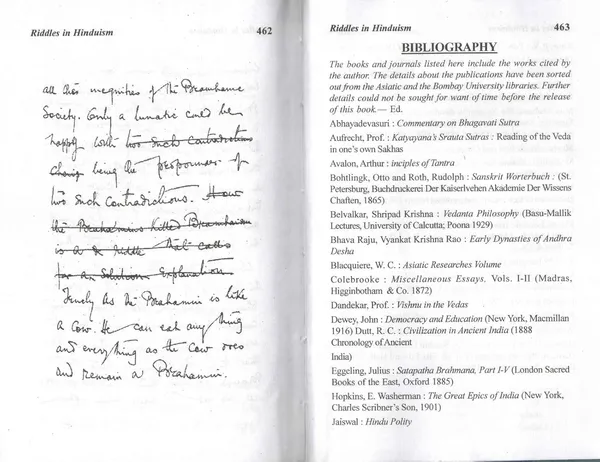 Riddles in Hinduism 462
all these inequities of the Bramhanic
Society. Only a lunatic could be
happy with two such contradictions
being the propounder of
two such contradictions. How
the Brahamins killed Bramhaism
is a riddle that calls
for an Solution Explanation
Truly as the Brahamin is like
a cow. He can eat any thing
and everything as the cow does
and remain a Brahamin.
Riddles in Hinduism 463
BIBLIOGRAPHY
The books and journals listed here include the works cited by
the author. The details about the publications have been sorted
out from the Asiatic and the Bombay University libraries. Further
details could not be sought for want of time before the release
of this book.— Ed.
Abhayadevasuri : Commentary on Bhagavati Sutra
Aufrecht, Prof. : Katyayana's Srauta Sutras : Reading of the Veda
in one's own Sakhas
Avalon, Arthur : inciples of Tantra
Bohtlingk, Otto and Roth, Rudolph : Sanskrit Worterbuch : (St.
Petersburg, Buchdruckerei Der Kaiserlvehen Akademie Der Wissens
Chaften, 1865)
Belvalkar, Shripad Krishna : Vedanta Philosophy (Basu-Mallik
Lectures, University of Calcutta; Poona 1929)
Bhava Raju, Vyankat Krishna Rao : Early Dynasties of Andhra
Desha
Blacquiere, W. C. : Asiatic Researches Volume
Colebrooke : Miscellaneous Essays, Vols. I-II (Madras,
Higginbotham & Co. 1872)
Dandekar, Prof. : Vishnu in the Vedas
Dewey, John : Democracy and Education (New York, Macmillan
1916) Dutt, R. C. : Civilization in Ancient India (1888
Chronology of Ancient
India)
Eggeling, Julius : Satapatha Brahmana, Part I-V (London Sacred
Books of the East, Oxford 1885)
Hopkins, E. Washerman : The Great Epics of India (New York,
Charles Scribner's Son, 1901)
Jaiswal : Hindu Polity